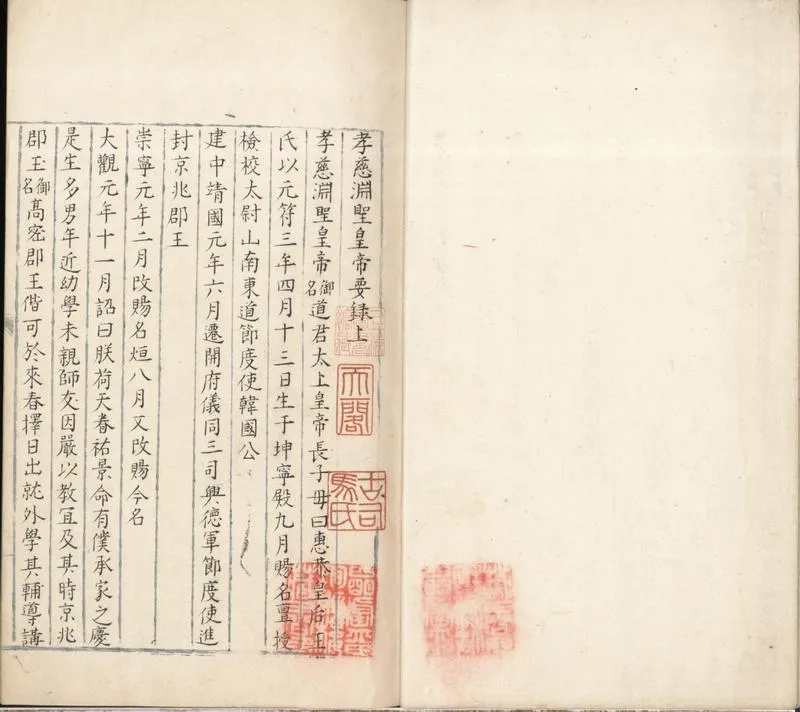 孝慈淵聖皇帝要錄上
孝慈淵聖皇帝御名道君太上皇帝長子母曰惠恭皇后王
氏以元符三年四月十三日生于坤寧殿九月賜名亶授
檢校太尉山南東道節度使韓國公
建中靖國元年六月遷開府儀同三司興德軍節度使進
封京兆郡王
崇寧元年二月改賜名烜八月又改賜今名
大觀元年十一月詔曰朕荷天眷祐景命有僕承家之慶
是生多男年近幼學未親師友因嚴以教宜及其時京兆
郡王御名高密郡王偕可於來春擇日出就外學其輔導講
天閣
古司馬氏